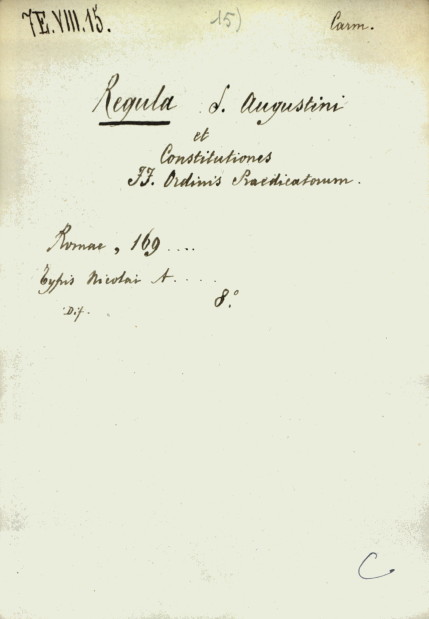 7E.VIII.15. 15) Carm.
Regula S. Augustini
et
Constitutiones
FF. Ordinis Praedicatorum.
Romae, 169....
Typis Nicolai A.....
8.°
Def.
C